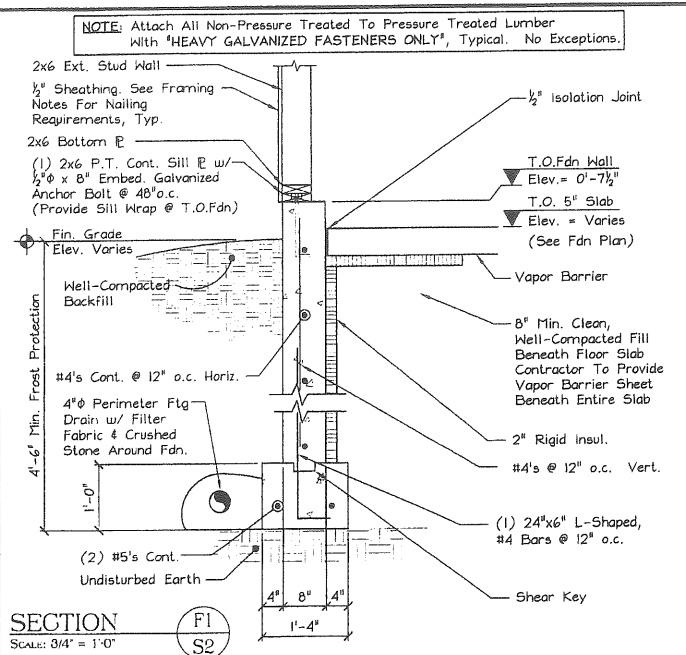 NOTE: Attach All Non-Pressure Treated To Pressure Treated Lumber
With "HEAVY GALVANIZED FASTENERS ONLY", Typical. No Exceptions.
2x6 Ext. Stud Wall
½" Sheathing. See Framing
Notes For Nailing
Requirements, Typ.
2x6 Bottom ℙL
(1) 2x6 P.T. Cont. Sill ℙL w/
½"ϕ x 8" Embed. Galvanized
Anchor Bolt @ 48"o.c.
(Provide Sill Wrap @ T.O.Fdn)
Fin. Grade
Elev. Varies
Well-Compacted
Backfill
4'-6" Min. Frost Protection
#4's Cont. @ 12" o.c. Horiz.
4"ϕ Perimeter Ftg
Drain w/ Filter
Fabric & Crushed
Stone Around Fdn.
1'-0"
(2) #5's Cont.
Undisturbed Earth
½" Isolation Joint
T.O.Fdn Wall
Elev.= 0'-7½"
T.O. 5" Slab
Elev. = Varies
(See Fdn Plan)
Vapor Barrier
8" Min. Clean,
Well-Compacted Fill
Beneath Floor Slab
Contractor To Provide
Vapor Barrier Sheet
Beneath Entire Slab
2" Rigid Insul.
#4's @ 12" o.c. Vert.
(1) 24"x6" L-Shaped,
#4 Bars @ 12" o.c.
Shear Key
4" 8" 4"
1'-4"
SECTION
SCALE: 3/4" = 1'-0"
F1
S2